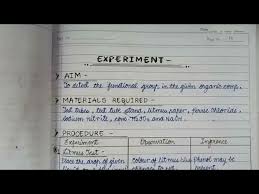 EXPERIMENT -
AIM -
To detect the functional group in the given organic comp.
MATERIALS REQUIRED -
Test tubes, test tube stand, litmus paper, ferric chloride,
sodium nitrite, conc H2SO4 and NaOH.
PROCEDURE -
Experiment Observation Inference
Litmus Test -
Place the drop of given colour of litmus blue Phenol may be
present